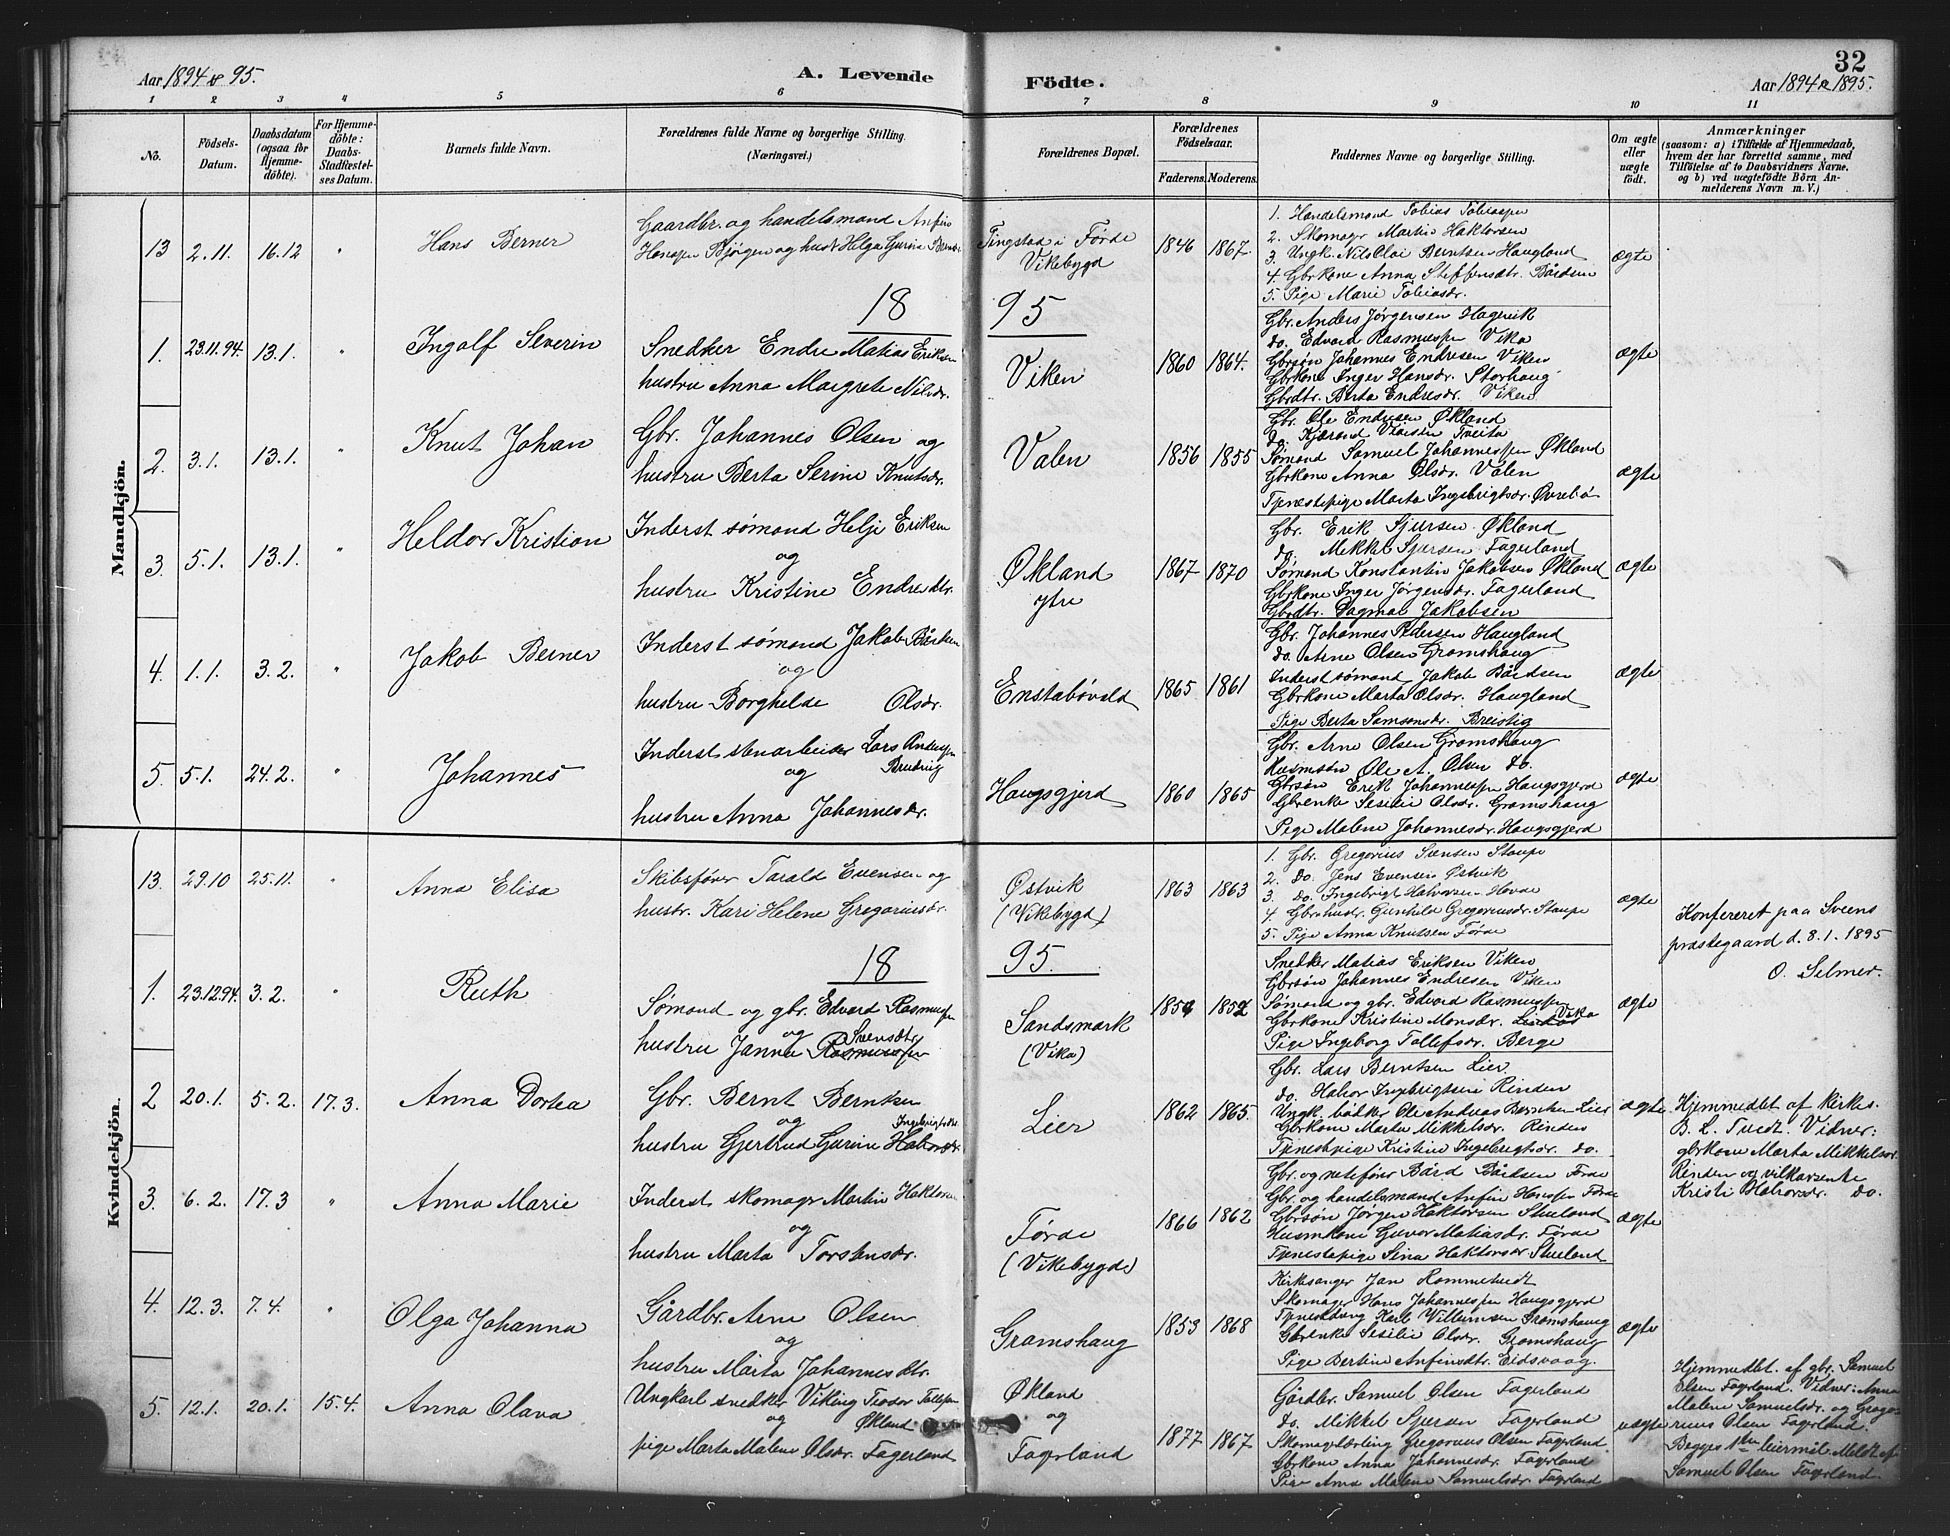 Aar 1894 & 95.
A. Levende
Födte.
32
Aar 1894 & 1895.
1 2 3 4 5 6 7 8 9 10 11
No.
Födsels-
Datum.
Daabsdatum
(ogsaa for
Hjemme-
döbte).
For Hjemme-
döbte:
Daabs-
Stadfæstel-
ses Datum.
Barnets fulde Navn.
Forældrenes fulde Navne og borgerlige Stilling.
(Næringsvei.)
Forældrenes Bopæl.
Forældrenes
Födselsaar.
Faderens. Moderens.
Faddernes Navne og borgerlige Stilling.
Om ægte
eller
uægte
födt.
Anmærkninger
(saasom: a) i Tilfælde af Hjemmedaab,
hvem der har forrettet samme, med
Tilföielse af to Daabsvidners Navne.
og b) ved uægtefödte Börn An-
melderens Navn m. V.)
Mandkjön.
13 2.11. 16.12 " Hans Berner
Gaardbr. og handelsmand Anfin
Hansen Bjørgen og hustr Helga Gurine Berntsdr
Tingstad i Førde
Vikebygd
1846 1867.
1. Handelsmand Tobias Tobiassen
2. Skomagr Martin Haktorsen
3. Ungk. Nils Olai Berntsen Haugland
4. Gbrkone Anna Steffensdtr. Bårdsen
5. Pige Marie Tobiasdr.
ægte
18 95
1. 23.11.94. 13.1. " Ingolf Severin
Snedker Endre Matias Eriksen
hustru Anna Margrete Nilsdr.
Viken
1860 1864.
Gbr. Anders Jørgensen Hagevik
do. Edvard Rasmussen Vika
Gbrsøn Johannes Endresen Viken
Gbrkone Inger Hansdr. Storhaug
Gbrdtr. Berta Endresdr. Viken
ægte
2. 3.1. 13.1. " Knut Johan
Gbr. Johannes Olsen og
hustru Berta Serine Knutsdr.
Valen
1856 1855
Gbr. Ole Endresen Økland
do. Kjærand Tveita
Sømand Samuel Johannessen Økland
Gbrkone Anna Olsdr. Valen
Tjenestepige Marta Ingebrigtsdr. Øvrebø
ægte
3. 5.1. 13.1. " Heldor Kristian
Inderst sømand Helje Eriksen
og
hustru Kristine Endresdtr.
Økland
ytre
1867 1870
Gbr. Erik Sjursen Økland
do. Mikkel Sjursen Fagerland
Sømand Konstantin Jakobsen Økland
Gbrkone Inger Jørgensdr. Fagerland
Gbrdtr. Dagmar Jakobsen
ægte
4. 1.1. 3.2. " Jakob Berner
Inderst sømand Jakob Bårdsen
og
hustru Borghilde Olsdr.
Enstabøvold
1865 1861
Gbr. Johannes Pedersen Haugland
do. Arne Olsen Gramshaug
Inderst sømand Jakob Bårdsen
Gbrkone Marta Olsdr. Haugland
Pige Berta Samsonsdr. Breistig
ægte
5. 5.1. 24.2. " Johannes
Inderst stenarbeider Lars Andersen
og
hustru Anna Johannesdr.
Haugsgjerd
1860 1865
Gbr. Arne Olsen Gramshaug
Husmsøn Ole A. Olsen do.
Gbrsøn Erik Johannessen Haugsgjerd
Gbrenke Sesilie Olsdr. Gramshaug
Pige Malene Johannesdr. Haugsgjerd
ægte
Kvindekjön.
13. 29.10 25.11. " Anna Elisa
Skibsfører Tarald Evensen og
hustr. Kari Helene Gregoriusdr.
Østvik
(Vikebygd)
1863 1863
1. Gbr. Gregorius Svensen Staupe
2. do. Jens Evensen Østvik
3. do. Ingebrigt Halvorsen Hovde
4. Gbrhustr. Gunhilde Gregoriusdr. Staupe
5. Pige Anna Knutsen Førde
ægte
Konfereret paa Sveens
præstegaard d. 8.1.1895
O. Selmer.
18 95.
1. 23.12.94. 3.2. " Ruth
Sømand og gbr. Edvard Rasmussen
og Svensdtr.
hustru Janna Rasmussen
Sandsmark
(Vika)
1854 1852
Snedker Matias Eriksen Viken
Gbrsøn Johannes Endresen Viken
Sømand og gbr. Edvard Rasmussen
Gbrkone Kristine Monsdr. Vika
Pige Ingeborg Tollefsdr. Berge
ægte
2 20.1. 5.2. 17.3. Anna Dortea
Gbr. Bernt Berntsen
og Ingebrigtsdtr.
hustru Gjertrud Gurine Halvorsdr.
Lier
1862 1865.
Gbr. Lars Berntsen Lier
do. Halvor Ingebrigtsen Rinden
Ungk. bødker Ole Andreas Berntsen Lier
Gbrkone Marta Mikkelsdr. Rinden
Tjenestepige Kristine Ingebrigtsdr. do.
ægte
Hjemmedøbt af kirkes.
B. L. Tvedt. Vidner:
gbrkone Marta Mikkelsdr.
Rinden og vilkårsenke
Kristi Halvorsdr. do.
3. 6.2. 17.3 " Anna Marie
Inderst skomagr Martin Haktorsen
og
hustru Marta Torstensdr.
Førde
(Vikebygd)
1866 1862
Gbr. og notefører Bård Bårdsen Førde
Gbr. og handelsmand Anfin Hansen Førde
Gbrsøn Jørgen Haktorsen Stueland
Husmkone Guvor Matiasdr. Førde
Tjenestepige Sina Haktorsdr Stueland
ægte
4. 12.3. 7.4. " Olga Johanna
Gårdbr. Arne Olsen
og
hustru Marta Johannesdtr.
Gramshaug
1853 1868
Kirkesanger Jan Rommetvedt
Skomager Hans Johannessen Haugsgjerd
Tjenestedreng Karl Villumsen Gramshaug
Gbrenke Sesilie Olsdr. Gramshaug
Pige Bertine Anfinsdtr. Eidsvaag.
ægte
5. 12.1. 20.1. 15.4. Anna Olava
Ungkarl snedker Viking Teodor Tollefsen
og Økland
pige Marta Malene Olsdr. Fagerland
Økland
og
Fagerland
1877 1867
Gårdbr. Samuel Olsen Fagerland
do. Mikkel Sjursen Fagerland
Skomagerlærling Gregorius Olsen Fagerland
Gbrkone Anna Johannesdr. Fagerland
Pige Anna Malene Samuelsdr. Fagerland
uægte
Hjemmedøbt af gbr. Samuel
Olsen Fagerland. Vidner: Anna
Malene Samuelsdr. og Grego-
rius Olsen Fagerland.
Begges 1ste leiermål. Meldt af
Samuel Olsen Fagerland.